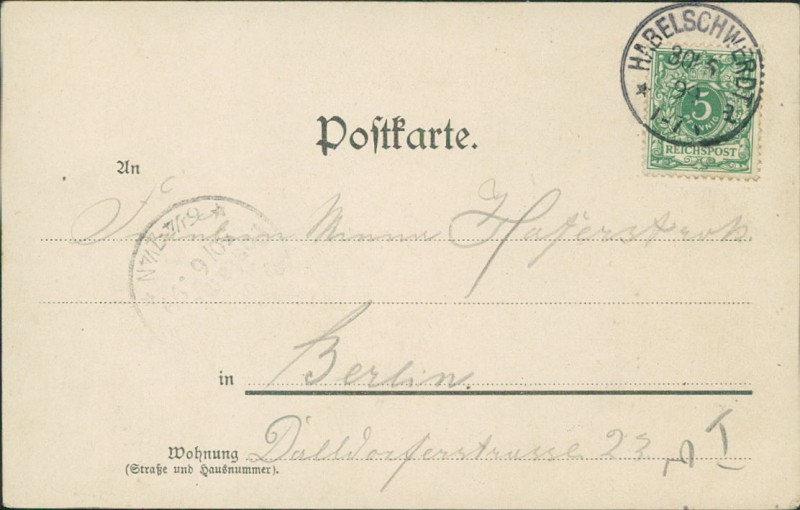 HABELSCHWERDT
5
REICHSPOST
Postkarte.
An
Fräulein Minna Haferstroh
in Berlin.
Wohnung Dalldorferstrasse 23
(Straße und Hausnummer).
I